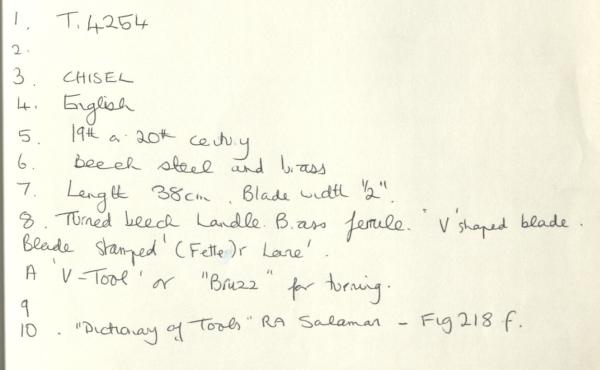 1. T.4254
2.
3. CHISEL
4. English
5. 19th or 20th century
6. Beech steel and brass
7. Length 38cm. Blade width 1/2".
8. Turned beech handle. Brass ferrule. 'V' shaped blade.
Blade stamped '(Fette)r Lane'.
A 'V-Tool' or "Bruzz" for turning.
9
10. "Dictionary of Tools" RA Salaman - Fig 218 f.